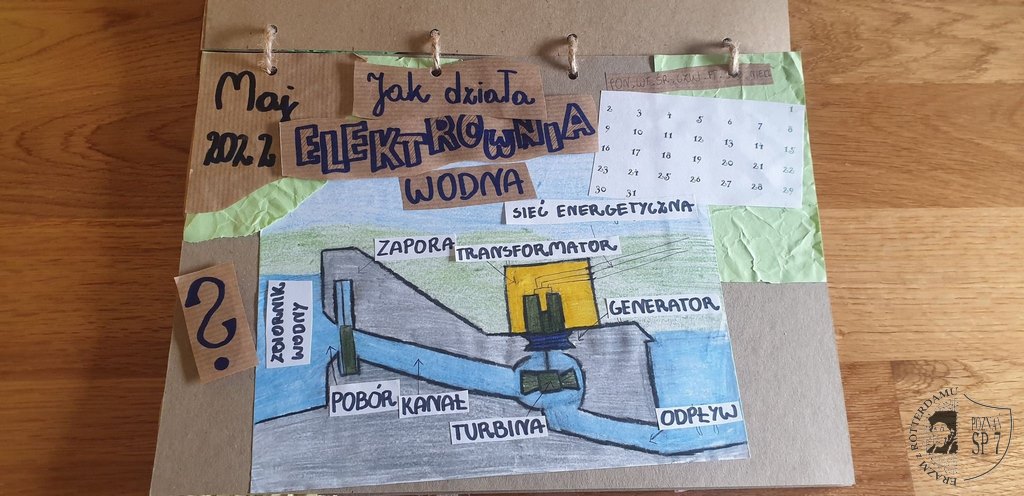 Maj
2022
Jak działa
ELEKTROWNIA
WODNA
?
PON. WT. ŚR. CZW. PT. SOB. NIEDZ.
1
2 3 4 5 6 7 8
9 10 11 12 13 14 15
16 17 18 19 20 21 22
23 24 25 26 27 28 29
30 31
SIEĆ ENERGETYCZNA
ZAPORA
TRANSFORMATOR
GENERATOR
ZBIORNIK
WODNY
POBÓR
KANAŁ
TURBINA
ODPŁYW
ERAZM z ROTTERDAMU
POZNAŃ
SP 7